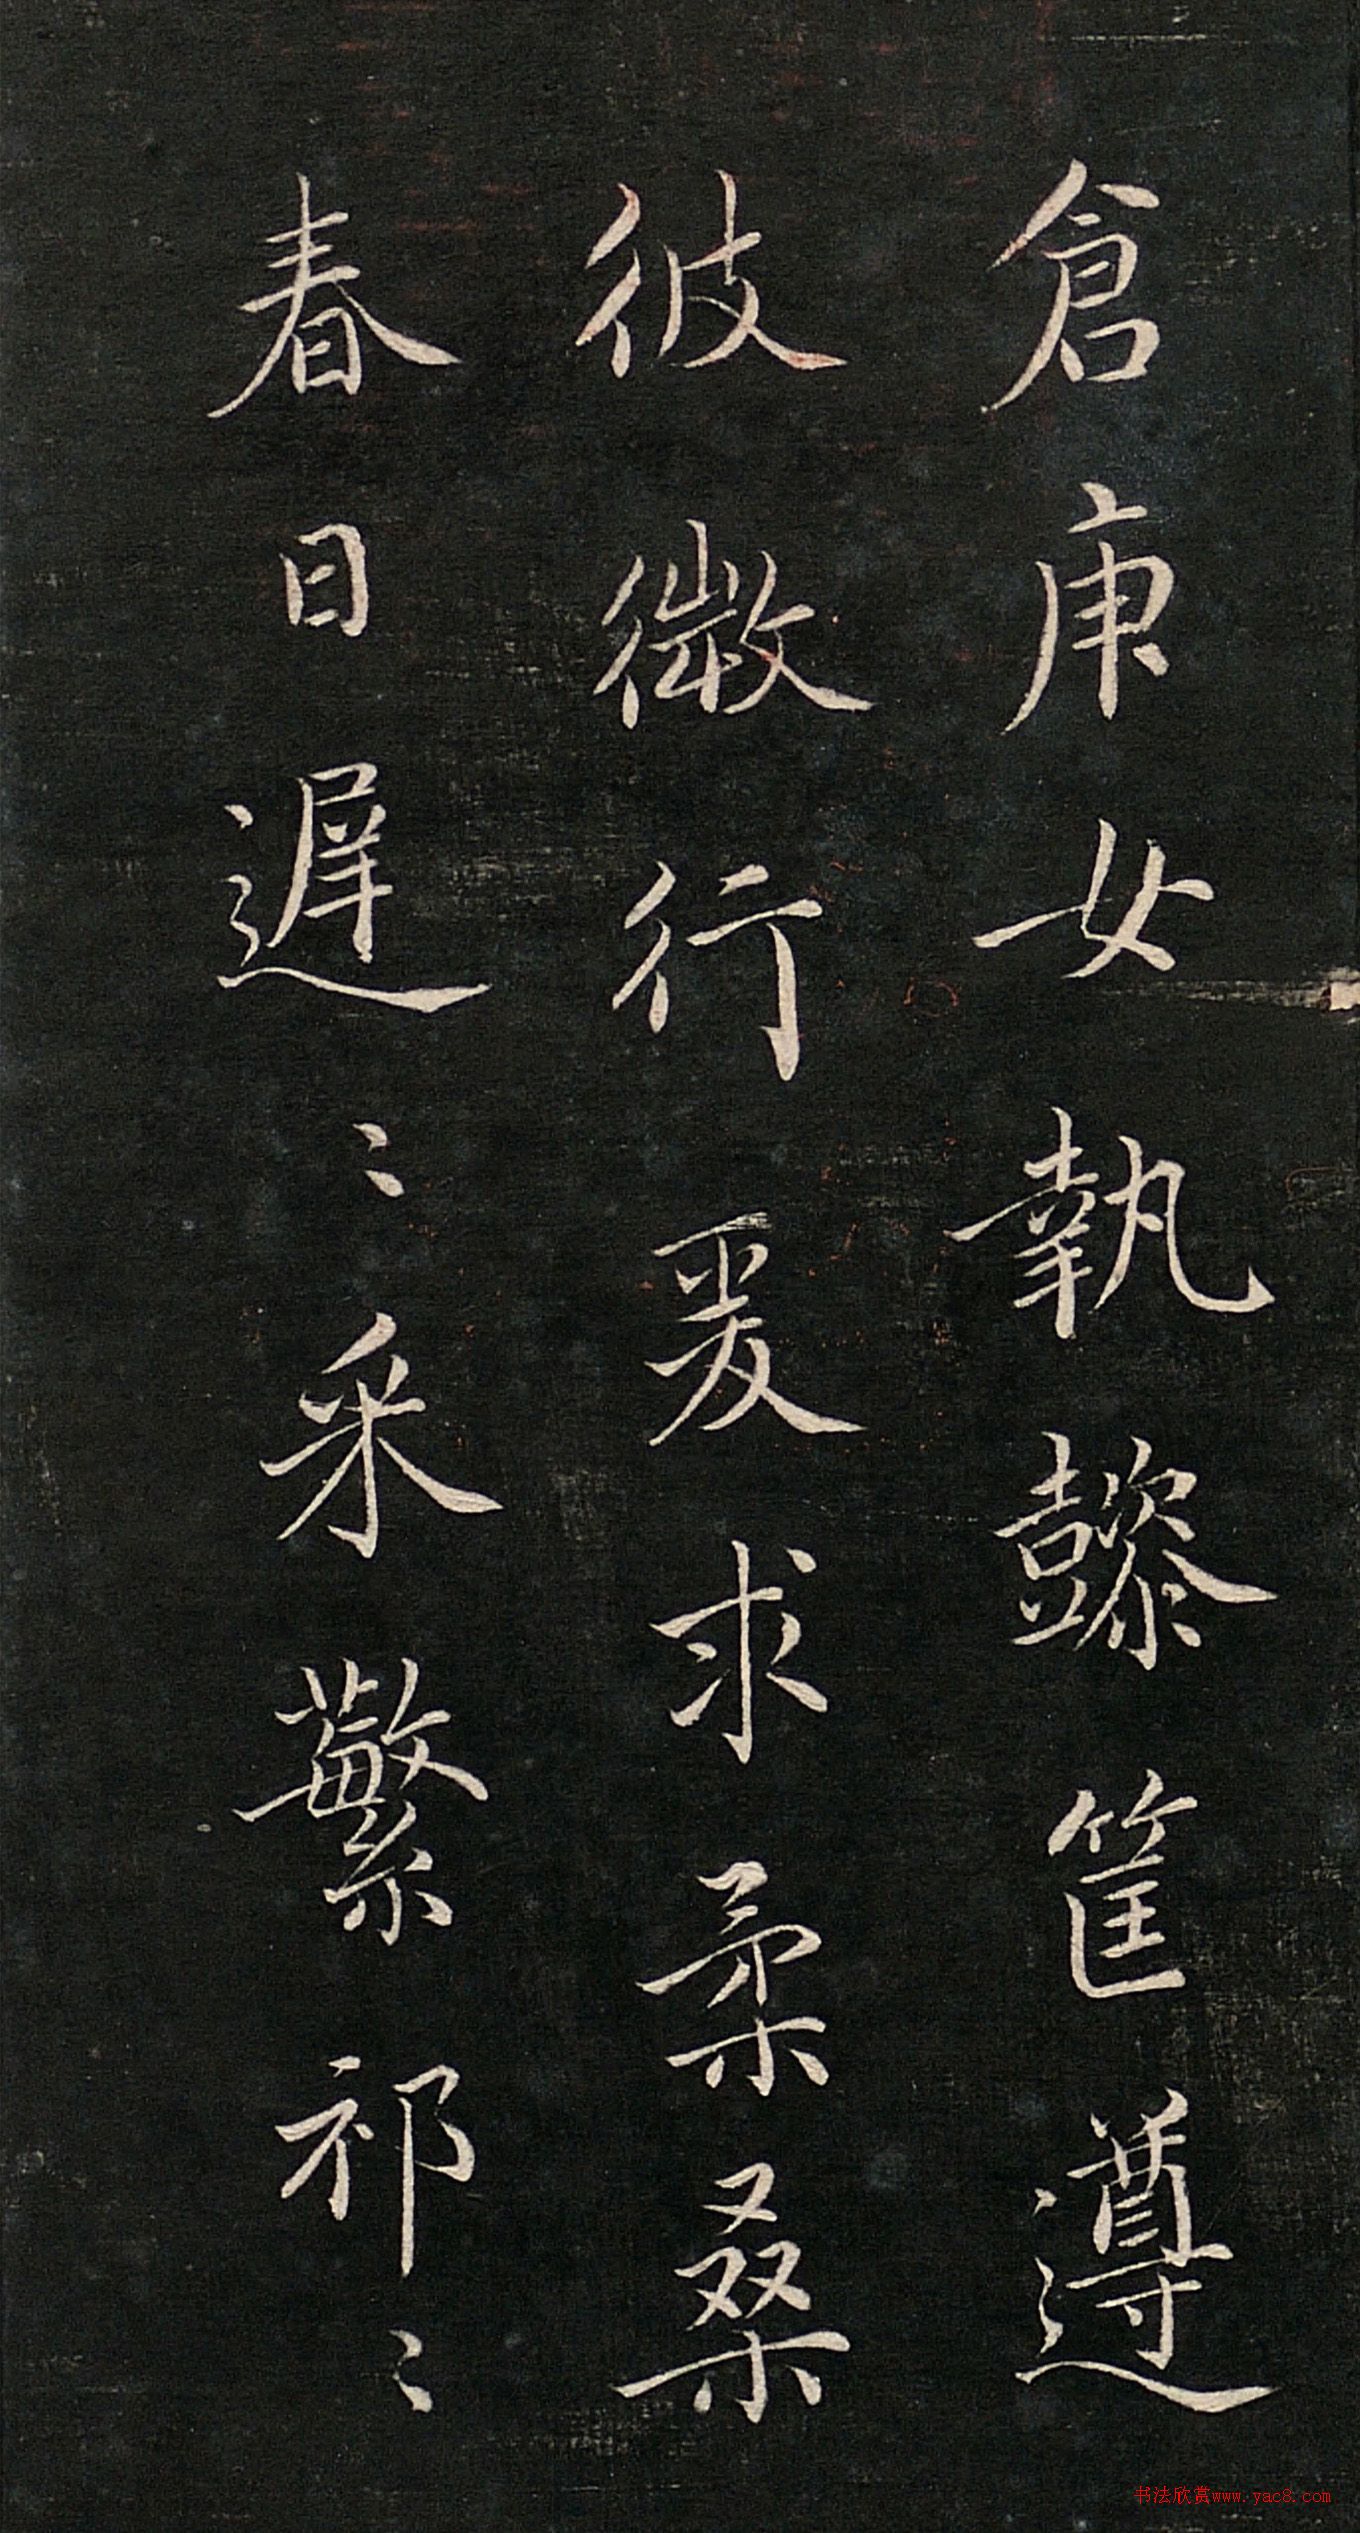 倉庚女執懿筐遵
彼微行爰求柔桑
春日遲〻采蘩祁〻
书法欣赏www.yac8.com